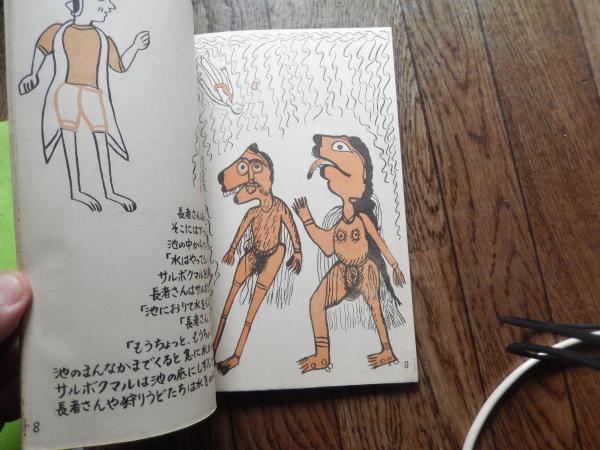 長者さんは
そこには
池の中から
「水はやって
サルボクマルを
長者さんはサル
「池におりて水を
「長者さん
「もうちょっと、もうち
池のまんなかまでくると急に水が
サルボクマルは池の底にしず
長者さんや狩りうどたちは水を
8
9